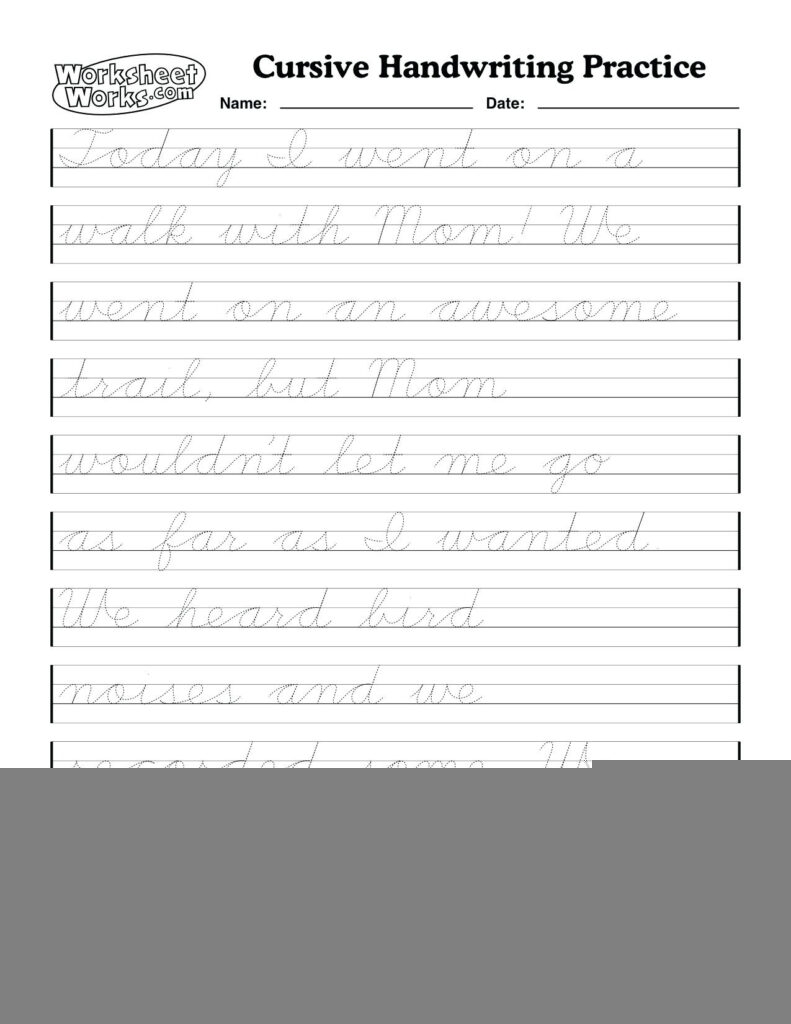 Worksheet
Works.com
Cursive Handwriting Practice
Name:
Date:
Today I went on a
walk with Mom! We
went on an awesome
trail, but Mom
wouldn't let me go
as far as I wanted.
We heard bird
noises and we
recorded some.